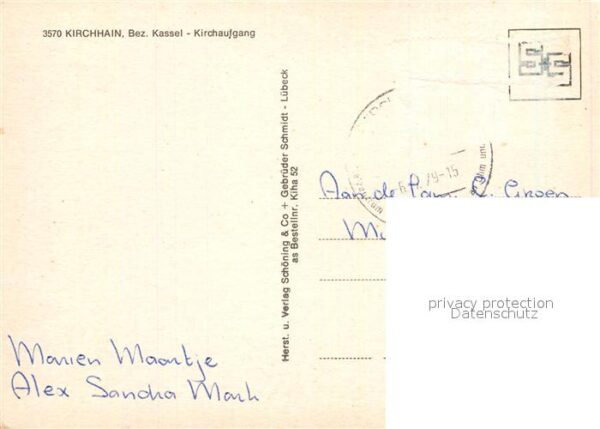 3570 KIRCHHAIN, Bez. Kassel - Kirchaufgang
Herst. u. Verlag Schöning & Co + Gebrüder Schmidt - Lübeck
as Bestellnr. Kiha 52
79-15
Aan de Fam. Groen
privacy protection
Datenschutz
Marien Maartje
Alex Sandra Mark